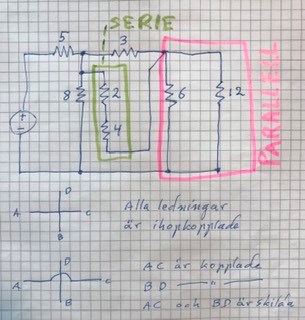 SERIE
5
3
8
2
4
6
12
PARALLELL
+
-
D
A
C
B
Alla ledningar
är ihopkopplade
D
A
C
B
AC är kopplade
BD —— " ——
AC och BD är skilda